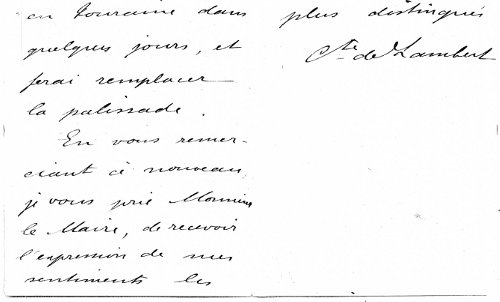 en Touraine dans
quelques jours, et
ferai remplacer
la palissade.
En vous remer-
ciant à nouveau,
je vous prie Monsieur
le Maire, de recevoir
l'expression de mes
sentiments les
plus distingués
Cte de Lambert